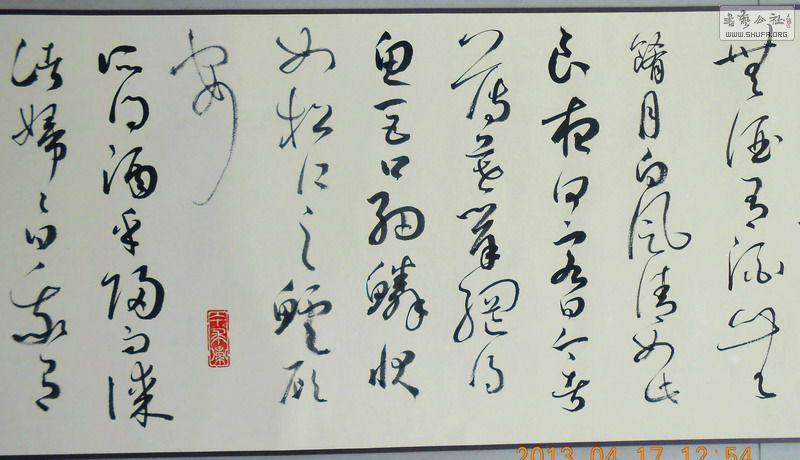 無酒有酒無
餚月白風清如此
良夜何客曰今者
薄暮舉網得
魚巨口細鱗狀
如松江之鱸顧
安
所得酒乎歸而謀
諸婦〻曰我有
書藝公社
WWW.SHUFA.ORG
2013.04.17 12:54